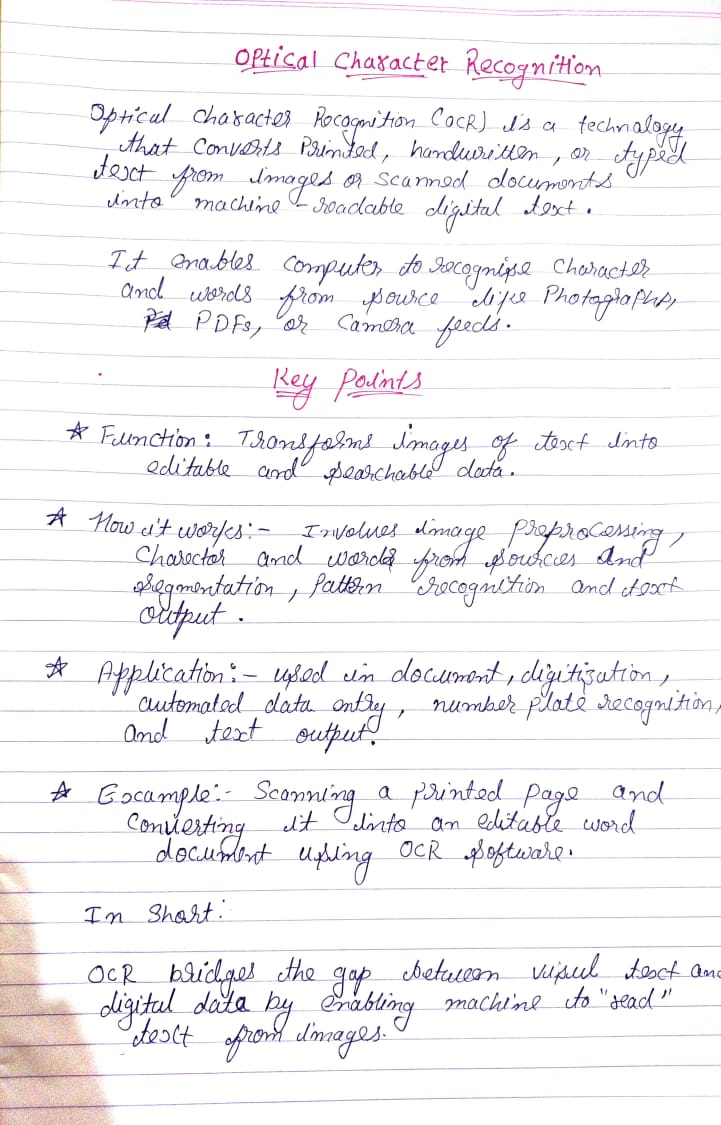 Optical Character Recognition
Optical Character Recognition (OCR) is a technology
that converts Printed, handwritten, or typed
text from images or scanned documents
into machine-readable digital text.
It enables computer to recognise Character
and words from source like Photographs,
PDFs, or Camera feeds.
Key Points
☆ Function: Transforms images of text into
editable and searchable data.
☆ How it works:- Involves image Preprocessing,
Charector and words from sources and
segmentation, Pattern recognition and text
output.
☆ Application:- used in document, digitization,
automated data entry, number plate recognition,
and text output.
☆ Example:- Scanning a printed page and
Converting it into an editable word
document using OCR software.
In Short:
OCR bridges the gap between visual text and
digital data by enabling machine to "read"
text from images.